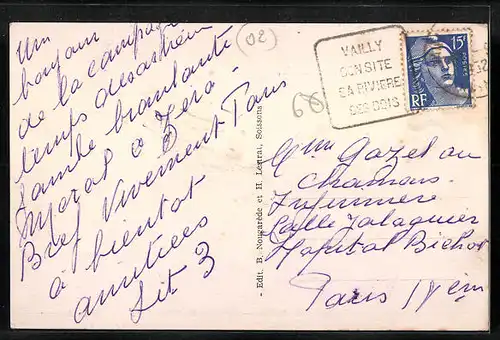 Un
bonjour
de la campagne
temps désastreux
Santé branlante
Moral à Zéro
Bref Vivement Paris
à bientôt
amitiées
Lit 3
(02)
68
VAILLY
SON SITE
SA RIVIERE
SES BOIS
15F
RF
- Edit. B. Nougarède et H. Lestrat, Soissons
Mme Gazel au
Infirmière
Salle Jalaguier
Hopital Bichat
Paris 18em